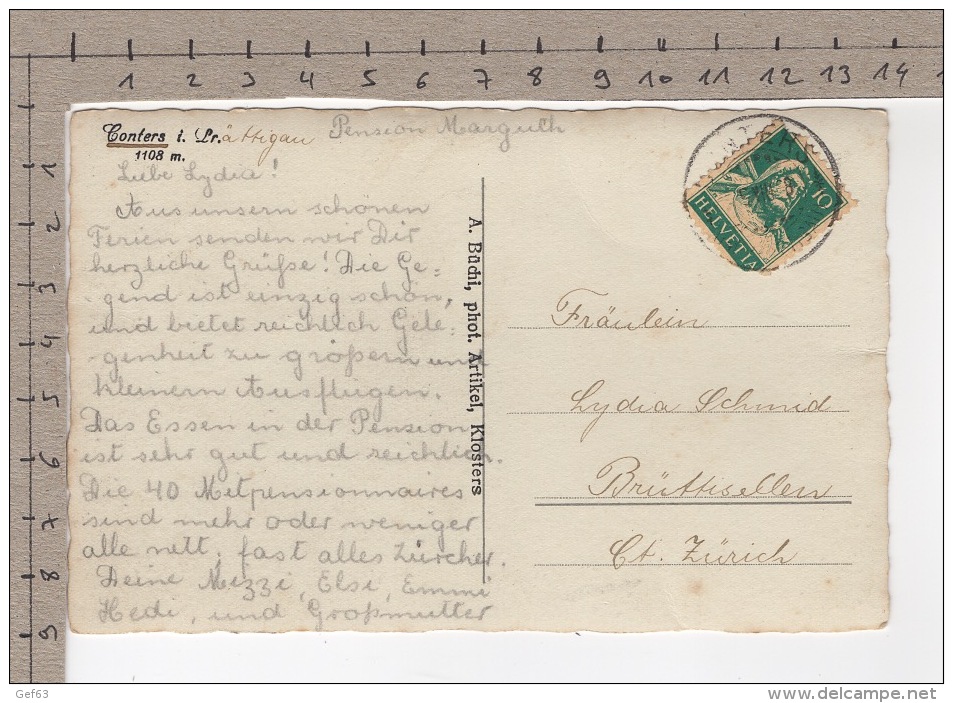 1 2 3 4 5 6 7 8 9 10 11 12 13 14
1 2 3 4 5 6 7 8 9
Conters i. Pr.ättigau Pension Marguth
1108 m.
Liebe Lydia!
Aus unsern schönen
Ferien senden wir Dir
herzliche Grüße! Die Ge=
gend ist einzig schön,
und bietet reichlich Gele=
genheit zu größern und
kleinern Ausflügen.
Das Essen in der Pension
ist sehr gut und reichlich.
Die 40 Mitpensionnaires
sind mehr oder weniger
alle nett, fast alles Zürcher.
Deine Mizzi, Elsi, Emmi
Hedi, und Großmutter
A. Büchi, phot. Artikel, Klosters
HELVETIA
10
Fräulein
Lydia Schmid
Brüttisellen
Ct. Zürich
Gef63
delcampe.net